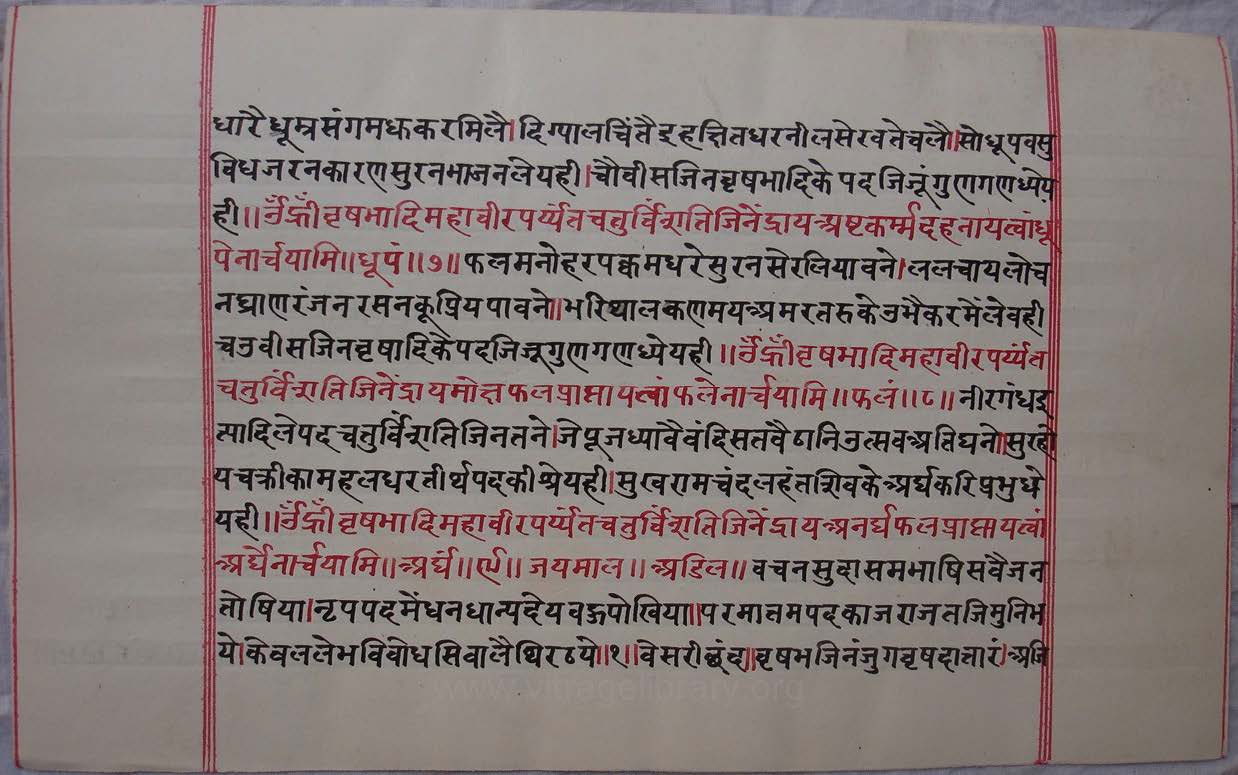 धारैधूम्रसंगमककरमिलै।दिग्पालचिंतैइहक्षितिधरनीलसेरवतेचलौ॥सोधूपवसु
विधजरनकारणसुरनभाजनलेयही।चौवीसजिनवृषभादिकेपदजिजूंगुणगणध्येय
ही॥ॐह्रीँवृषभादिमहावीरपर्य्यंतचतुर्विंशतिजिनेंद्रायअष्टकर्म्मदहनायत्वांधू
पेनार्चयामि॥धूपं॥७॥फलमनोहरपक्कमधरेसुरनसेरलियावने।ललचायलोच
नघ्राणरंजनरसनकूप्रियपावने॥भरिथालकणमयअमरतरुकेउभैकरमेंलेवही
चउवीसजिनवृषादिकेपदजिजूगुणगणध्येयही॥ॐह्रीँवृषभादिमहावीरपर्य्यंत
चतुर्विंशतिजिनेंद्रायमोक्षफलप्राप्तायत्वांफलेनार्चयामि॥फलं॥८॥नीरगंधइ
त्यादिलेपदचतुर्विंशतिजिनतने।जेपूजध्यावैवंदिसतवैठानिउत्सवअतिघनो॥सुरहो
यचक्रीकामहलधरतीर्थपदकीश्रेयही।सुखरामचंदलहंतशिवकेअर्घकरिप्रभुधे
यही॥ॐह्रीँवृषभादिमहावीरपर्य्यंतचतुर्विंशतिजिनेंद्रायअनर्घफलप्राप्तायत्वां
अर्घेनार्चयामि॥अर्घं॥९॥जयमाल॥अडिल॥वचनसुदासमभाषिसंवैजन
तोषिया।नृपपदमेंधनधान्यदेयवहुपोखिया॥परमातमपदकाजराजतजिमुनिभ
ये।केवललेभविवोधसिवालैथिरठये॥१॥वेसरीछंद॥वृषभजिनंजुगवृषदातारं।अजि
www.vitragelibrary.org